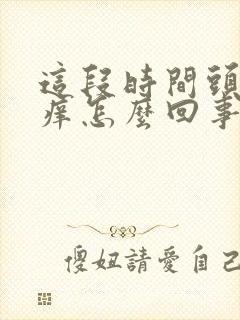 這段時間頭
痒怎麼回事
傻妞請愛自己